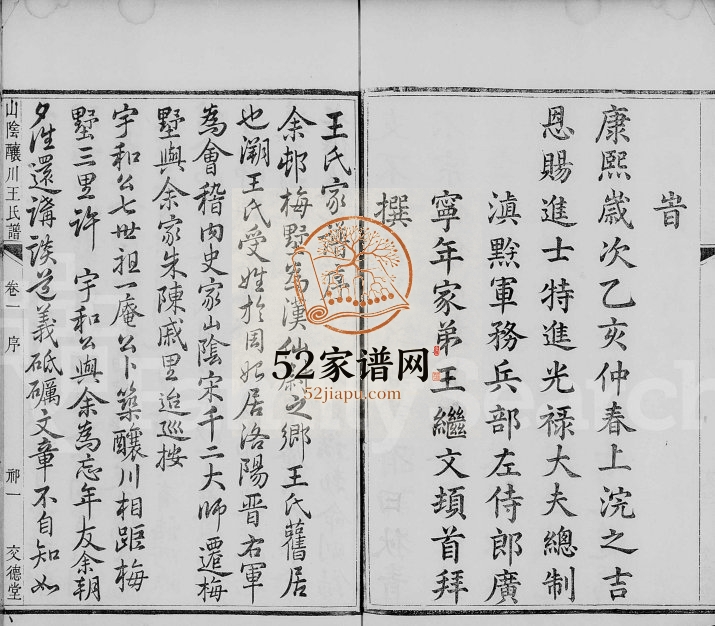 旹
康熙歲次乙亥仲春上浣之吉
恩賜進士特進光祿大夫總制
滇黔軍務兵部左侍郎廣
寧年家弟王繼文頓首拜
撰
王氏家譜序
余邨梅墅為漢仙尉之鄉王氏舊居
也溯王氏受姓於周始居洛陽晉右軍
為會稽內史家山陰宋千二大師遷梅
墅與余家朱陳戚里迨巡按
宇和公七世祖一庵公卜築釀川相距梅
墅三里許 宇和公與余為忘年友余朝
夕往還講談道義砥礪文章不自知如
山陰釀川王氏譜 卷一 序 一 交德堂
52家谱网
52jiapu.com
FamilySearch